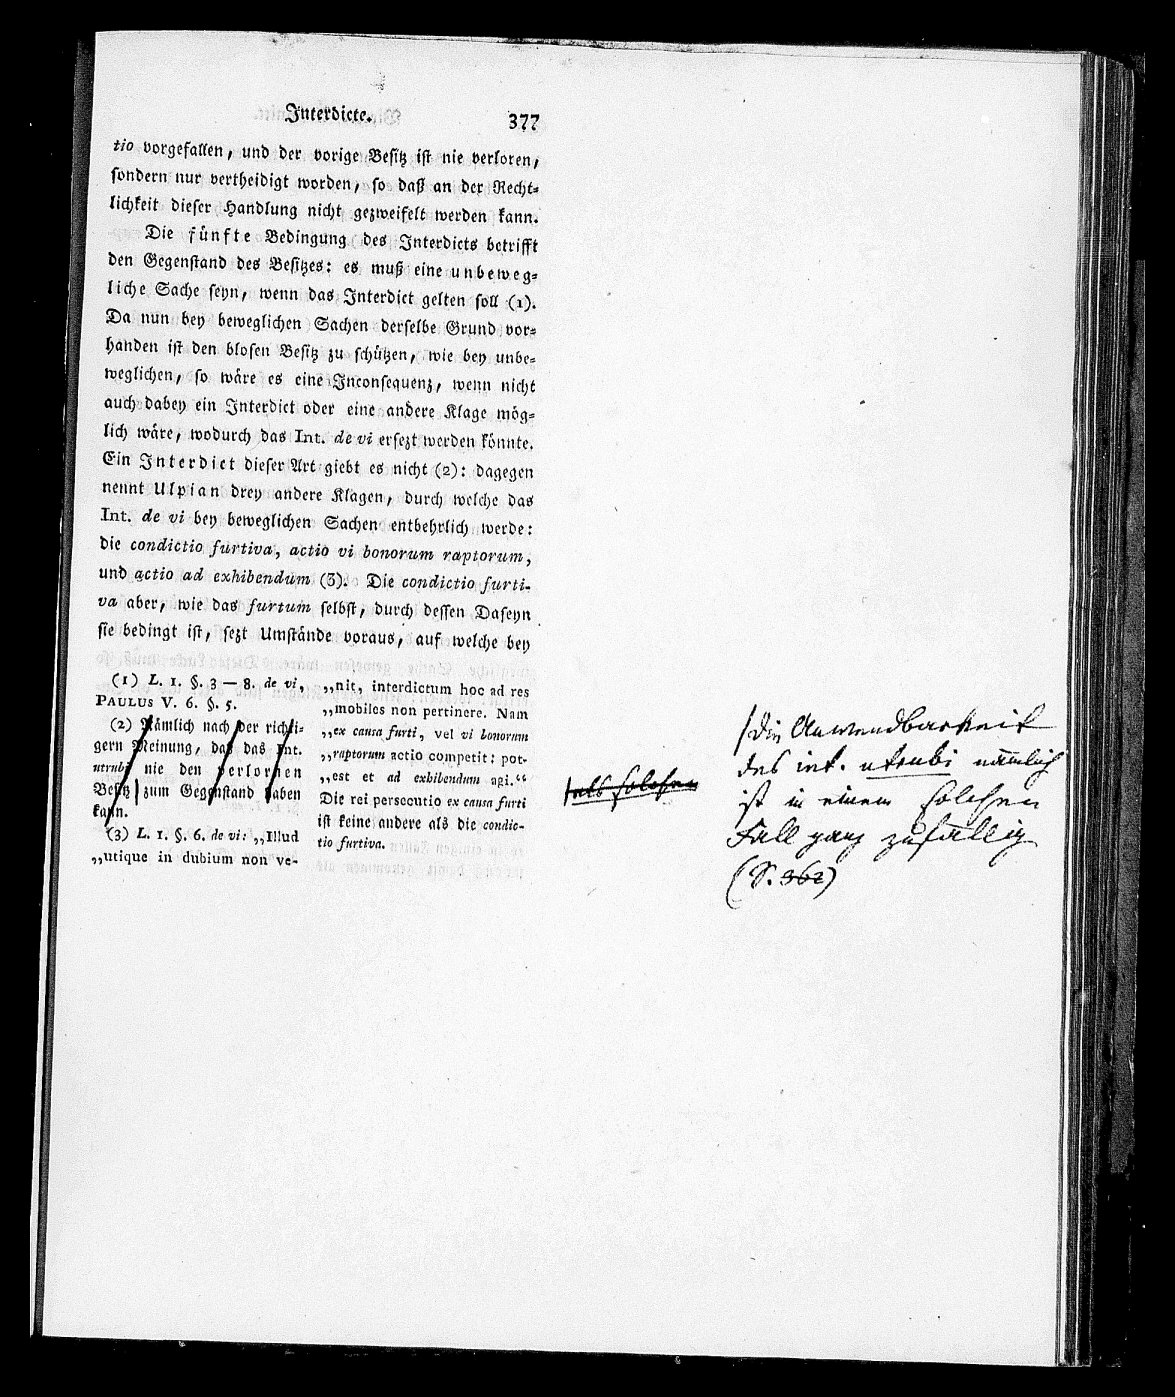 Interdicte. 377
tio vorgefallen, und der vorige Besitz ist nie verloren,
sondern nur vertheidigt worden, so daß an der Recht-
lichkeit dieser Handlung nicht gezweifelt werden kann.
Die fünfte Bedingung des Interdicts betrifft
den Gegenstand des Besitzes: es muß eine unbeweg-
liche Sache seyn, wenn das Interdict gelten soll (1).
Da nun bey beweglichen Sachen derselbe Grund vor-
handen ist den blosen Besitz zu schützen, wie bey unbe-
weglichen, so wäre es eine Inconsequenz, wenn nicht
auch dabey ein Interdict oder eine andere Klage mög-
lich wäre, wodurch das Int. de vi ersezt werden könnte.
Ein Interdict dieser Art giebt es nicht (2): dagegen
nennt Ulpian drey andere Klagen, durch welche das
Int. de vi bey beweglichen Sachen entbehrlich werde:
die condictio furtiva, actio vi bonorum raptorum,
und actio ad exhibendum (3). Die condictio furti-
va aber, wie das furtum selbst, durch dessen Daseyn
sie bedingt ist, sezt Umstände voraus, auf welche bey
(1) L. 1. §. 3 — 8. de vi,
PAULUS V. 6. §. 5.
(2) Nämlich nach der richti-
gern Meinung, daß das Int.
utrubi nie den verlornen
Besitz zum Gegenstand haben
kann.
(3) L. 1. §. 6. de vi: „Illud
„utique in dubium non ve-
„nit, interdictum hoc ad res
„mobiles non pertinere. Nam
„ex causa furti, vel vi bonorum
„raptorum actio competit: pot-
„est et ad exhibendum agi.“
Die rei persecutio ex causa furti
ist keine andere als die condic-
tio furtiva.
als solchen
/Die Anwendbarkeit
des int. utrubi nämlich
ist in einem solchen
Fall ganz zufällig
(S. 362)